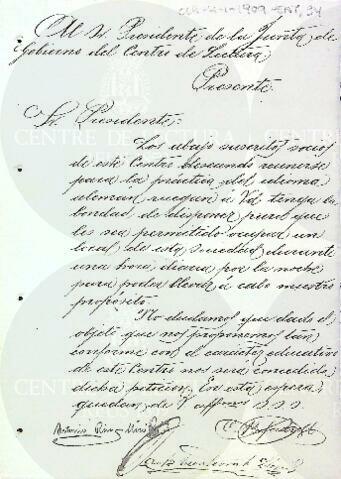 M. I. Presidente de la Junta de
Gobierno del Centro de Lectura
Presente.
Sr. Presidente:
Los abajo suscritos socios
de este Centro deseando reunirse
para la práctica del idioma
aleman ruegan á Vd. tenga la
bondad de disponer para que
les sea permitido ocupar un
local de esta sociedad durante
una hora diaria por la noche
para poder llevar á cabo nuestro
propósito.
No dudamos que dado el
objeto que nos proponemos tan
conforme con el carácter educativo
de este Centro nos sera concedida
dicha peticion. En esta espera
quedan de V affmos. s.s.s.
Antonio